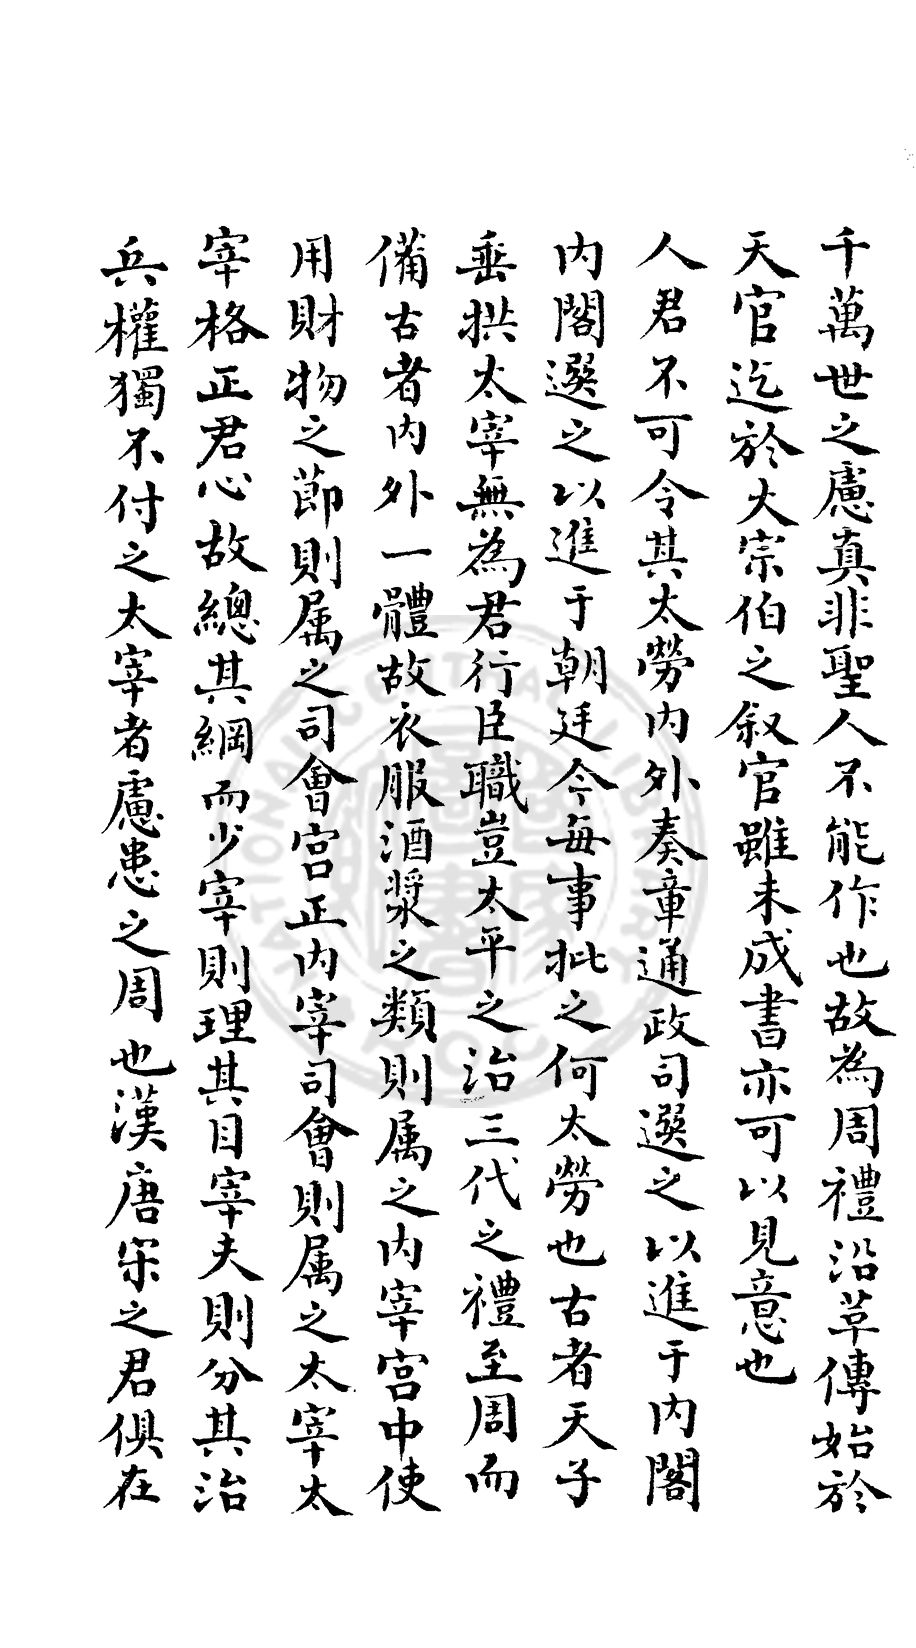 千萬世之慮真非聖人不能作也故為周禮沿革傳始於
天官迄於大宗伯之叙官雖未成書亦可以見意也
人君不可令其太勞内外奏章通政司選之以進于内閣
内閣選之以進于朝廷今每事批之何太勞也古者天子
垂拱太宰無為君行臣職豈太平之治三代之禮至周而
備古者内外一體故衣服酒漿之類則属之内宰宫中使
用財物之節則属之司會宫正内宰司會則属之太宰太
宰格正君心故總其綱而少宰則理其目宰夫則分其治
兵權獨不付之太宰者慮患之周也漢唐宋之君俱在